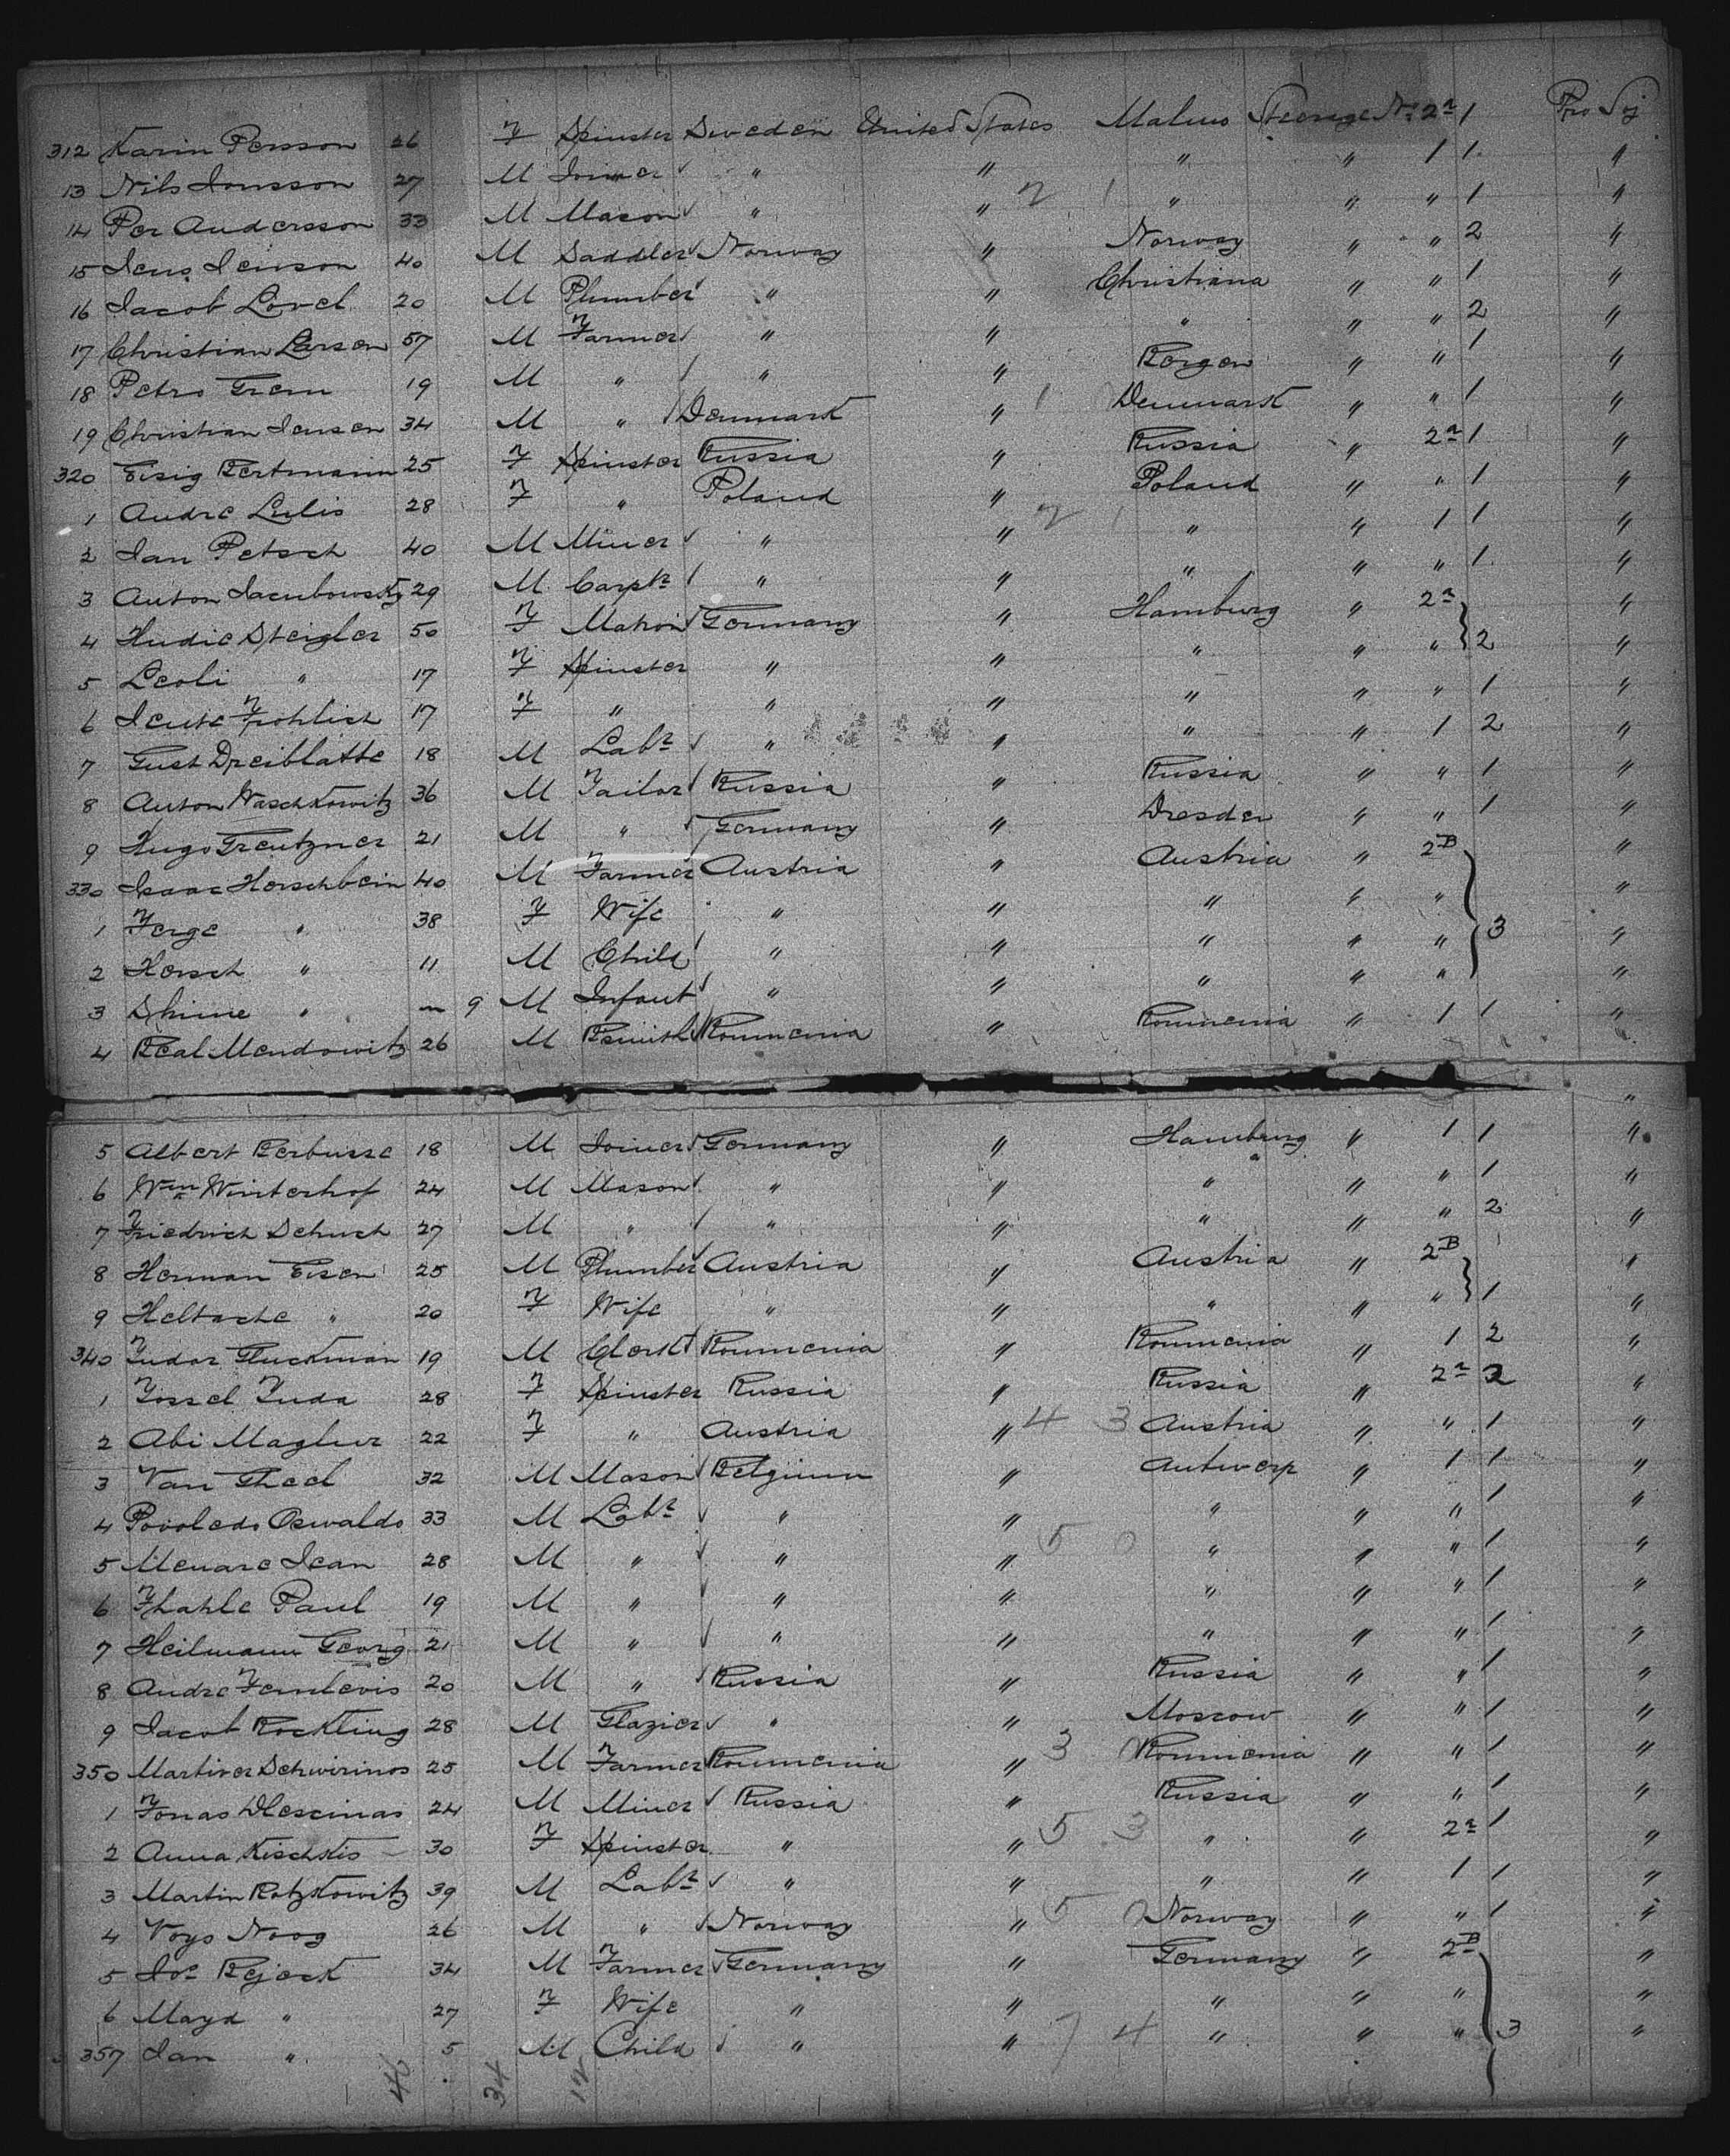 312 Karin Persson 26 F Spinster Sweden United States Malmo Steerage No 2a 1 Pro Soj
13 Nils Jonsson 27 M Joiner " " " " 1 1 "
14 Per Andersson 33 M Mason " " 2 1 " " " 1 "
15 Jens Jenson 40 M Saddler Norway " Norway " " 2 "
16 Jacob Lovel 20 M Plumber " " Christiana " " 1 "
17 Christian Larsen 57 M Farmer " " " " " 2 "
18 Petro Grem 19 M " " " Bergen " " 1 "
19 Christian Jensen 34 M " Denmark " 1 Denmark " " 1 "
320 Eisig Bertmann 25 F Spinster Russia " Russia " 2a 1 "
1 Andre Lulis 28 F " Poland " Poland " " 1 "
2 Jan Petsch 40 M Miner " " 2 1 " " 1 1 "
3 Anton Jacubowsky 29 M Carptr " " " " " 1 "
4 Hudie Steigler 50 F Matron Germany " Hamburg " 2a "
5 Leoli " 17 F Spinster " " " " " 2 "
6 Jente Frohlich 17 F " " " " " " 1 "
7 Gust Dreiblatte 18 M Labr " " " " 1 2 "
8 Anton Waschkowitz 36 M Tailor Russia " Russia " " 1 "
9 Hugo Treutzner 21 M " Germany " Dresden " " 1 "
330 Isaac Herschbein 40 M Farmer Austria " Austria " 2B "
1 Ferge " 38 F Wife " " " " " "
2 Hersch " 11 M Child " " " " " 3 "
3 Shime " 9 M Infant " " " " " "
4 Beal Mendowitz 26 M Bsmith Roumenia " Roumenia " 1 1 "
5 Albert Berbusse 18 M Joiner Germany " Hamburg " 1 1 "
6 Wm Winterhof 24 M Mason " " " " " 1 "
7 Friedrich Schuch 27 M " " " " " " 2 "
8 Herman Eisen 25 M Plumber Austria " Austria " 2B "
9 Heltache " 20 F Wife " " " " " 1 "
340 Judor Gluckman 19 M Clerk Roumenia " Roumenia " 1 2 "
1 Jossel Juda 28 F Spinster Russia " Russia " 2a 2 "
2 Abi Maglur 22 F " Austria " 4 3 Austria " " 1 "
3 Van Gheel 32 M Mason Belgium " Antwerp " 1 1 "
4 Povoledo Oswaldo 33 M Labr " " " " " 1 "
5 Menare Jean 28 M " " " 5 0 " " " 1 "
6 Fhahle Paul 19 M " " " " " " 1 "
7 Heilmann Georg 21 M " " " " " " 1 "
8 Andre Femlevis 20 M " Russia " Russia " " 1 "
9 Jacob Rockling 28 M Glazier " " Moscow " " 1 "
350 Martiver Schwirinos 25 M Farmer Roumenia " 3 0 Roumenia " " 1 "
1 Jonas 24 M Miner Russia " Russia " " 1 "
2 Anna Kischkis 30 F Spinster " " 5 3 " " 2a 1 "
3 Martin Rotzkowitz 39 M Labr " " " " 1 1 "
4 Voys Noog 26 M " Norway " 5 0 Norway " " 1 "
5 Jos Bejeck 34 M Farmer Germany " Germany " 2B "
6 Mayd " 27 F Wife " " " " " "
357 Jan " 5 M Child " " 7 4 " " " 3 "
34 12